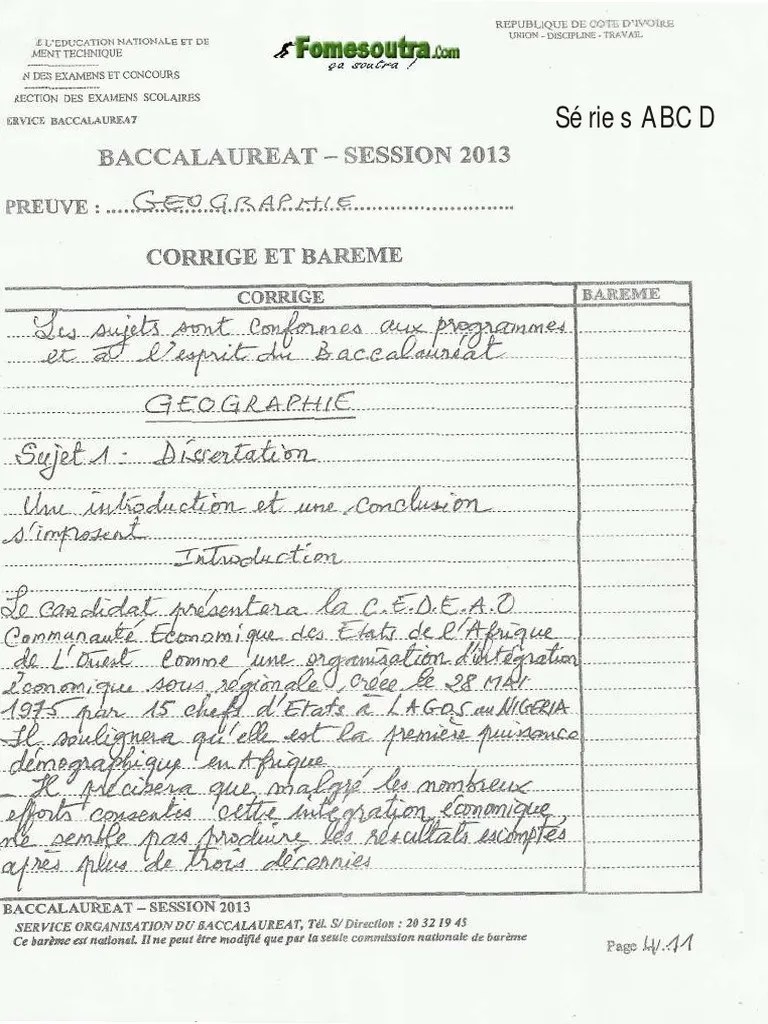 E L'EDUCATION NATIONALE ET DE
MENT TECHNIQUE
N DES EXAMENS ET CONCOURS
RECTION DES EXAMENS SCOLAIRES
ERVICE BACCALAUREAT
Fomesoutra.com
ça soutra !
REPUBLIQUE DE COTE D'IVOIRE
UNION - DISCIPLINE - TRAVAIL
Séries ABCD
BACCALAUREAT – SESSION 2013
PREUVE : GEOGRAPHIE
CORRIGE ET BAREME
CORRIGE
BAREME
Les sujets sont conformes aux programmes
et à l'esprit du Baccalauréat
GEOGRAPHIE
Sujet 1 - Dissertation
Une introduction et une conclusion
s'imposent
Introduction
Le candidat présentera la C.E.D.E.A.O
Communauté Economique des Etats de l'Afrique
de L'Ouest comme une organisation d'intégration
économique sous régionale, créée le 28 MAI
1975 par 15 chefs d'Etats à LAGOS au NIGERIA
Il soulignera qu'elle est la première puissance
démographique en Afrique
- Il précisera que malgré les nombreux
efforts consentis cette intégration économique
ne semble pas produire les résultats escomptés
après plus de trois décennies
BACCALAUREAT – SESSION 2013
SERVICE ORGANISATION DU BACCALAUREAT, Tél. S/ Direction : 20 32 19 45
Ce barème est national. Il ne peut être modifié que par la seule commission nationale de barème
Page 4/11